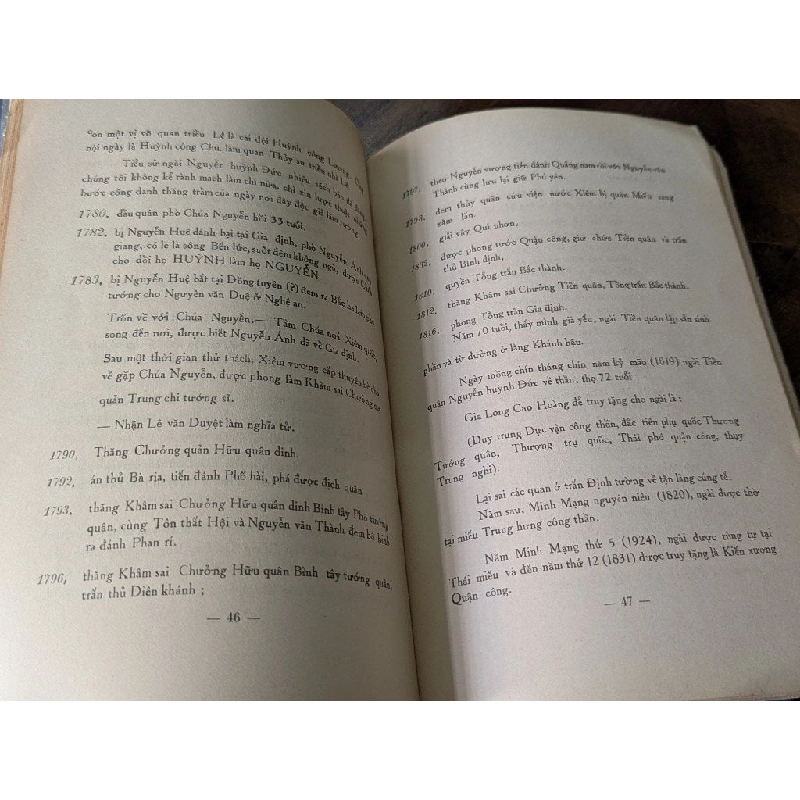 con một vị võ quan triều Lê là cai đội Huỳnh công Lương. Ông
nội ngày là Huỳnh công Chu, làm quan Thủy sư triều nhà Lê
Tiểu sử ngài Nguyễn huỳnh Đức, nhiều sách báo đã đăng,
chúng tôi không kể rành mạch làm chi nữa, chỉ xin lược thuật những
bước công danh thăng trầm của ngày nơi đây độc giả làm tường
1780. đầu quân phò Chúa Nguyễn hồi 33 tuổi.
1782. bị Nguyễn Huệ đánh bại tại Gia định, phò Nguyễn Ánh
giang, có lẽ là sông Bến lức, suốt đêm không ngủ, được Chúa
cho đổi họ HUỲNH làm họ NGUYỄN
1783, bị Nguyễn Huệ bắt tại Đồng tuyên (?) đem ra Bắc
tướng cho Nguyễn văn Duệ ở Nghệ an.
Trốn về với Chúa Nguyễn.— Tầm Chúa nơi Xiêm quốc,
song đến nơi, được biết Nguyễn Ánh đã về Gia định.
Sau một thời gian thử thách, Xiêm vương cấp thuyền bè cho
về gặp Chúa Nguyễn, được phong làm Khâm sai Chưởng cơ
quản Trung chi tướng sĩ.
— Nhận Lê văn Duyệt làm nghĩa tử.
1790, Thăng Chưởng quản Hữu quân dinh.
1792, án thủ Bà rịa, tiến đánh Phố hài, phá được địch quân
1793, thăng Khâm sai Chưởng Hữu quân dinh Bình tây Phó tướng
quân, cùng Tôn thất Hội và Nguyễn văn Thành đem bộ binh
ra đánh Phan rí.
1796, thăng Khâm sai Chưởng Hữu quân Bình tây tướng quân,
trấn thủ Diên khánh ;
— 46 —
1797. theo Nguyễn vương tiến đánh Quảng nam rồi với Nguyễn văn
Thành cùng lưu lại giữ Phú yên.
đem thủy quân cứu viện nước Xiêm bị quân Miến sang
xâm lấn.
giải vây Qui nhơn,
được phong tước Quận công, giữ chức Tiền quân và trấn
thủ Bình định,
1810. quyền Tổng trấn Bắc thành.
1812. thăng Khâm sai Chưởng Tiền quân, Tổng trấn Bắc thành.
1816. phong Tổng trấn Gia định.
Năm 70 tuổi, thấy mình già yếu, ngài Tiền quân lập sẵn sinh
phần và từ đường ở làng Khánh hậu.
Ngày mồng chín tháng chín, năm kỷ mão (1819) ngài Tiền
quân Nguyễn huỳnh Đức về thần, thọ 72 tuổi.
Gia Long Cao Hoàng đế truy tặng cho ngài là :
(Duy trung Dực vận công thần, đặc tiến phụ quốc Thượng
Tướng quân, Thượng trụ quốc, Thái phó quận công, thụy
Trung nghị).
Lại sai các quan ở trấn Định tường về tận làng cúng tế.
Năm sau, Minh Mạng nguyên niên (1820), ngài được thờ
tại miếu Trung hưng công thần.
Năm Minh Mạng thứ 5 (1924), ngài được tùng tự tại
Thái miếu và đến năm thứ 12 (1831) được truy tặng là Kiến xương
Quận công.
— 47 —